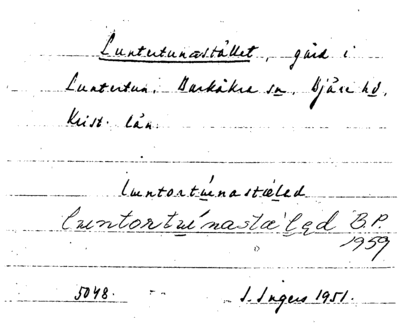 Luntertunastället, gård i
Luntertun, Barkåkra sn, Bjäre hd,
Krist. län.
luntortúnastæ̀led
luntortɯ́nastæ̀ləd B.P.
1959
5048. I. Ingers 1951.